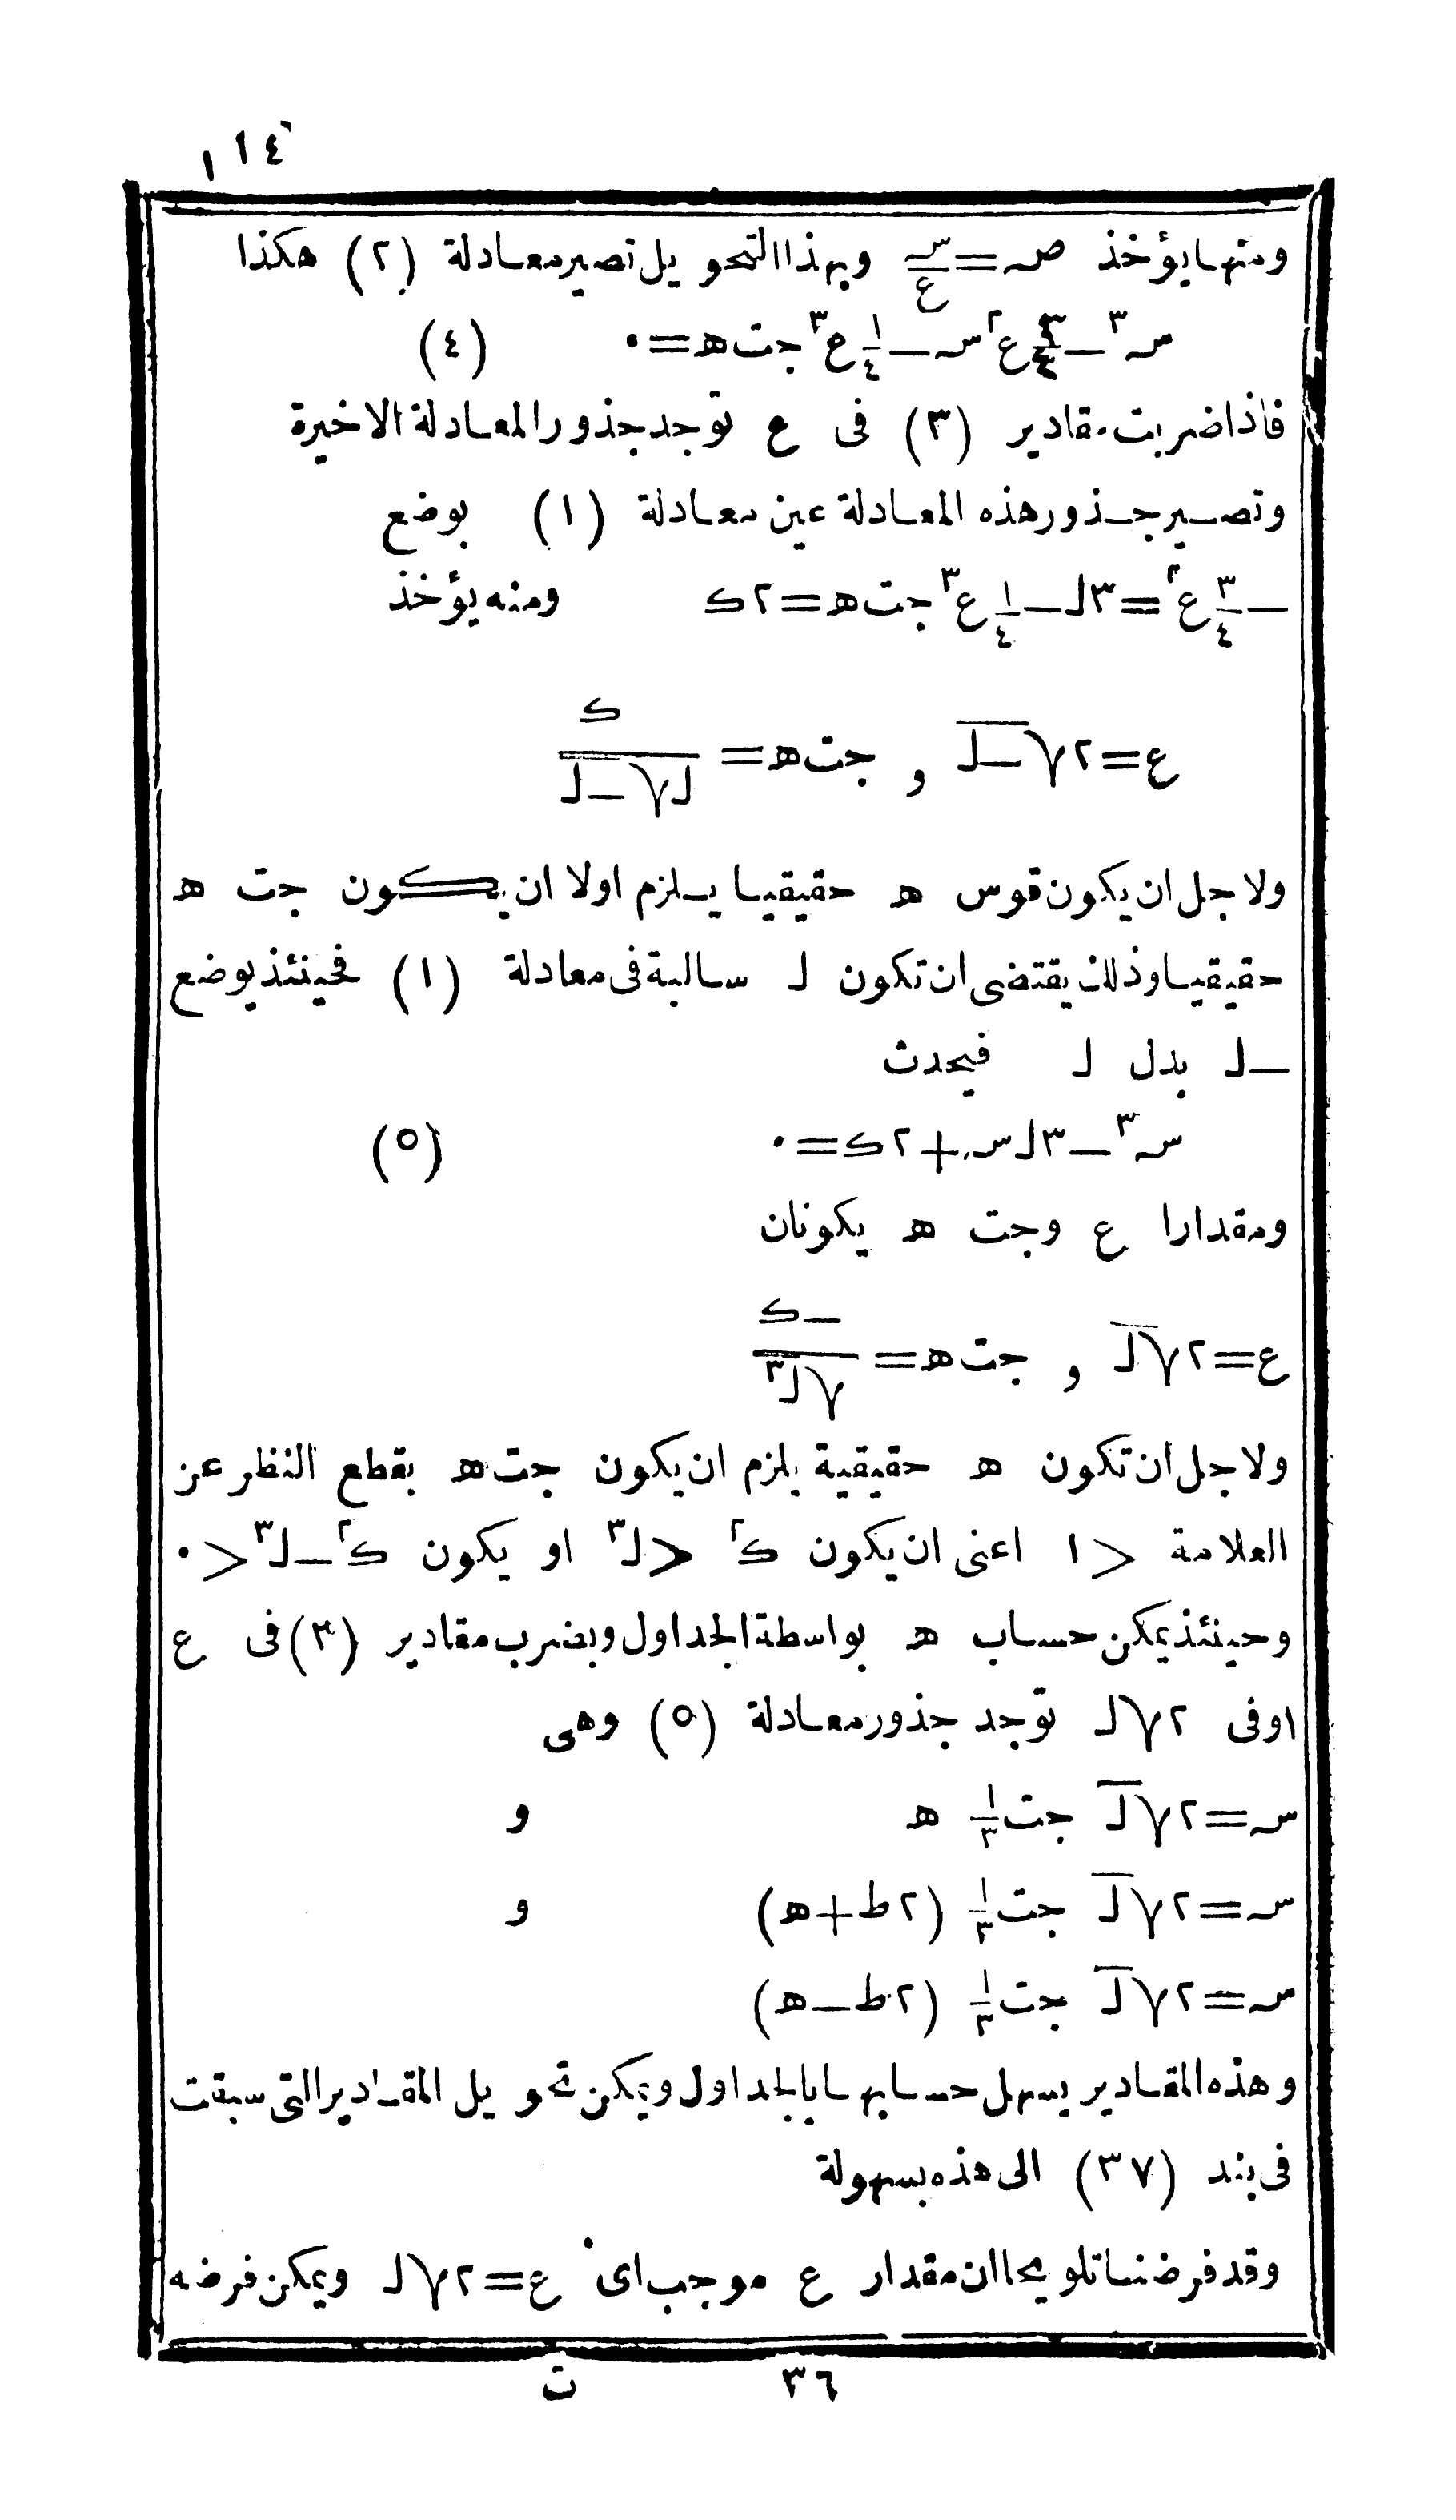 ١١٤
ومنها يؤخذ صہ = سہ/ع وبهذا التحويل تصير معادلة (٢) هكذا
سہ^٣ − ٣/٤ ع^٢ سہ − ١/٤ ع^٣ جت ھ = ٠ (٤)
فاذا ضربت مقادير (٣) فى ع توجد جذور المعادلة الاخيرة
وتصير جذور هذه المعادلة عين معادلة (١) بوضع
− ٣/٤ ع^٢ = ٣ل − ١/٤ ع^٣ جت ھ = ٢ك ومنه يؤخذ
ع = ٢√−ل و جت ھ = ك/ل√−ل
ولاجل ان يكون قوس ھ حقيقيا يلزم اولا ان يكون جت ھ
حقيقيا وذلك يقتضى ان تكون ل سالبة فى معادلة (١) فحينئذ يوضع
−ل بدل ل فيحدث
سہ^٣ − ٣ل سہ + ٢ك = ٠ (٥)
ومقدارا ع وجت ھ يكونان
ع = ٢√ل و جت ھ = −ك/√ل^٣
ولاجل ان تكون ھ حقيقية يلزم ان يكون جت ھ بقطع النظر عن
العلامة < ١ اعنى ان يكون ك^٢ < ل^٣ او يكون ك^٢ − ل^٣ < ٠
وحينئذ يمكن حساب ھ بواسطة الجداول وبضرب مقادير (٣) فى ع
اوفى ٢√ل توجد جذور معادلة (٥) وهى
سہ = ٢√ل جت ١/٣ ھ و
سہ = ٢√ل جت ١/٣ (٢ط + ھ) و
سہ = ٢√ل جت ١/٣ (٢ط − ھ)
وهذه المقادير يسهل حسابها بالجداول ويمكن تحويل المقادير التى سبقت
فى بند (٣٧) الى هذه بسهولة
وقد فرضنا تلويحا ان مقدار ع موجب اى ع = ٢√ل ويمكن فرضه
٣٦ ت